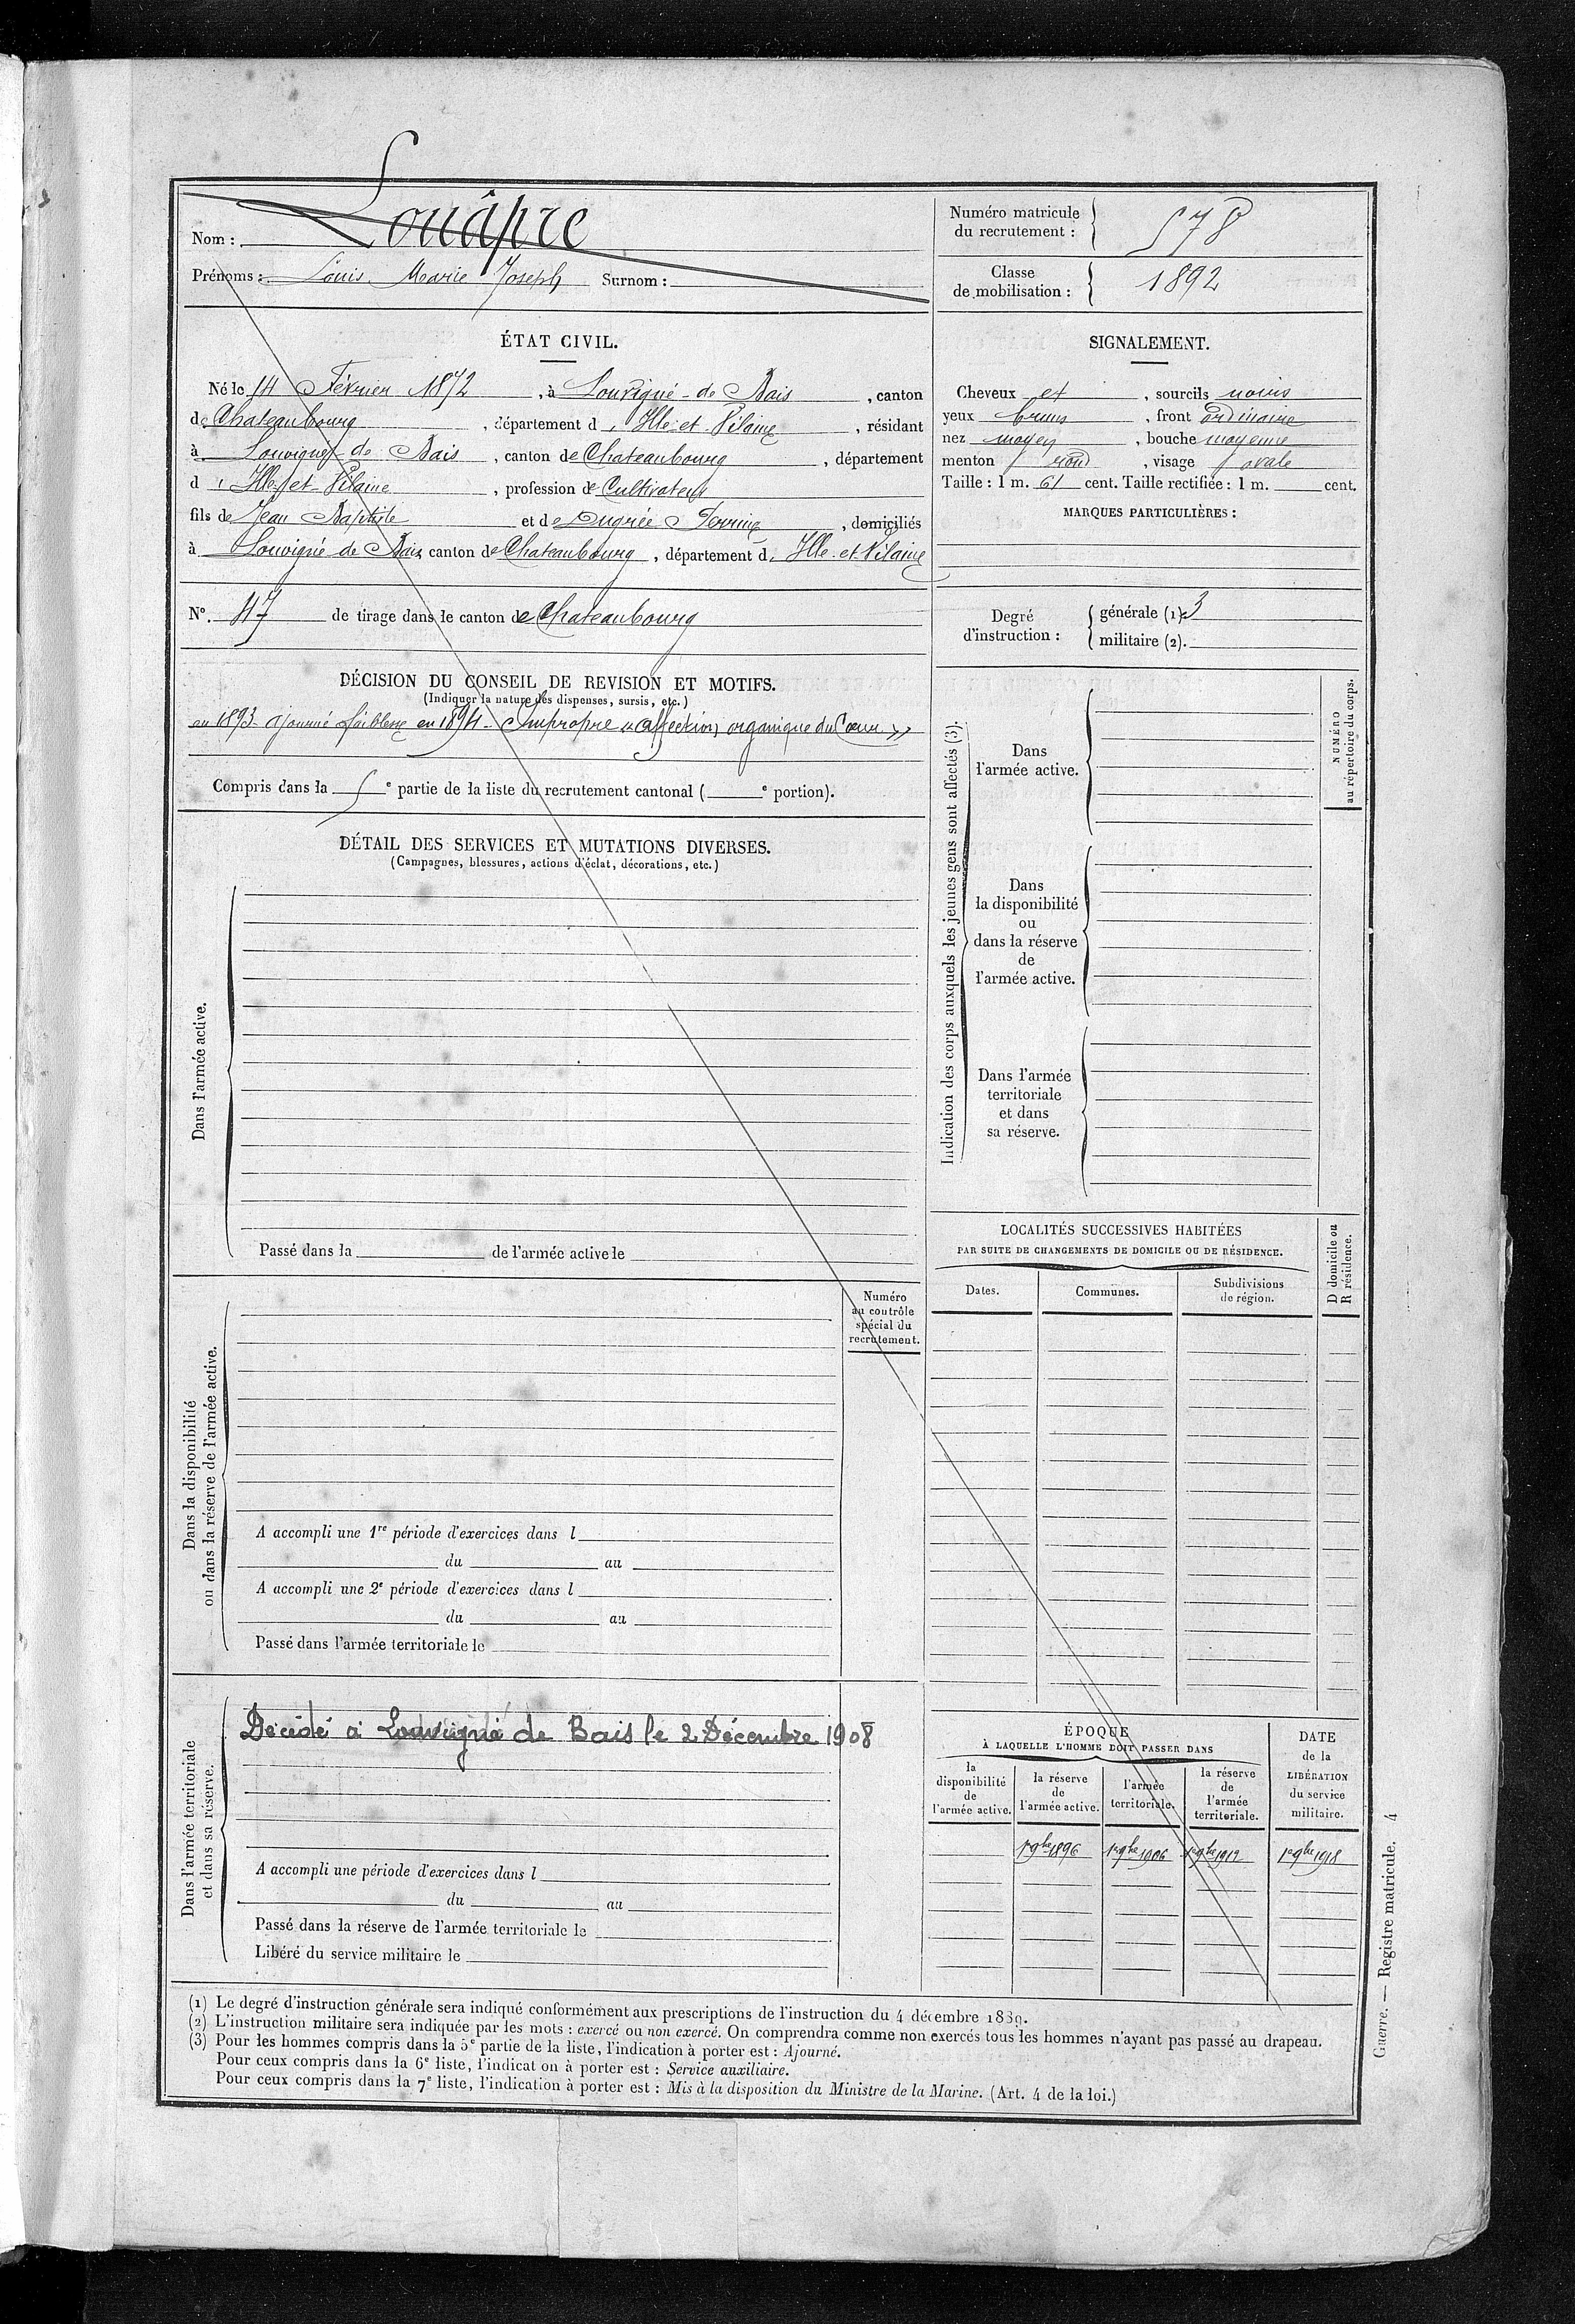 Nom : Louâpre
Prénoms : Louis Marie Joseph Surnom :
Numéro matricule du recrutement : 578
Classe de mobilisation : 1892
ÉTAT CIVIL.
Né le 14 Février 1872, à Louvigné-de Bais, canton
de Chateaubourg, département d'Ille-et-Vilaine, résidant
à Louvigné de Bais, canton de Chateaubourg, département
d'Ille-et-Vilaine, profession de Cultivateur
fils de Jean Baptiste et de Dugrée Perrine, domiciliés
à Louvigné de Bais canton de Chateaubourg, département d'Ille-et-Vilaine
N° 47 de tirage dans le canton de Chateaubourg
SIGNALEMENT.
Cheveux et, sourcils noirs
yeux bruns, front ordinaire
nez moyen, bouche moyenne
menton rond, visage ovale
Taille : 1 m. 61 cent. Taille rectifiée : 1 m. cent.
MARQUES PARTICULIÈRES :
Degré d'instruction :
générale (1) 3
militaire (2).
DÉCISION DU CONSEIL DE REVISION ET MOTIFS.
(Indiquer la nature des dispenses, sursis, etc.)
en 1893 ajourné faiblesse en 1894 - Impropre « affection organique du Cœur »
Compris dans la 5e partie de la liste du recrutement cantonal ( e portion).
DÉTAIL DES SERVICES ET MUTATIONS DIVERSES.
(Campagnes, blessures, actions d'éclat, décorations, etc.)
Dans l'armée active.
Passé dans la de l'armée active le
Indication des corps auxquels les jeunes gens sont affectés (3).
Dans
l'armée active.
Dans
la disponibilité
ou
dans la réserve
de
l'armée active.
Dans l'armée
territoriale
et dans
sa réserve.
NUMÉRO
au répertoire du corps.
LOCALITÉS SUCCESSIVES HABITÉES
PAR SUITE DE CHANGEMENTS DE DOMICILE OU DE RÉSIDENCE.
Dates.
Communes.
Subdivisions
de région.
D domicile ou
R résidence.
Dans la disponibilité
ou dans la réserve de l'armée active.
Numéro
au contrôle
spécial du
recrutement.
A accompli une 1re période d'exercices dans l
du au
A accompli une 2e période d'exercices dans l
du au
Passé dans l'armée territoriale le
Dans l'armée territoriale
et dans sa réserve.
Décédé à Louvigné de Bais le 2 Décembre 1908
A accompli une période d'exercices dans l
du au
Passé dans la réserve de l'armée territoriale le
Libéré du service militaire le
ÉPOQUE
À LAQUELLE L'HOMME DOIT PASSER DANS
la
disponibilité
de
l'armée active.
la réserve
de
l'armée active.
l'armée
territoriale.
la réserve
de
l'armée
territoriale.
DATE
de la
LIBÉRATION
du service
militaire.
1er 9bre 1896
1er 9bre 1906
1er 9bre 1912
1er 9bre 1918
(1) Le degré d'instruction générale sera indiqué conformément aux prescriptions de l'instruction du 4 décembre 1889.
(2) L'instruction militaire sera indiquée par les mots : exercé ou non exercé. On comprendra comme non exercés tous les hommes n'ayant pas passé au drapeau.
(3) Pour les hommes compris dans la 5e partie de la liste, l'indication à porter est : Ajourné.
Pour ceux compris dans la 6e liste, l'indicat on à porter est : Service auxiliaire.
Pour ceux compris dans la 7e liste, l'indication à porter est : Mis à la disposition du Ministre de la Marine. (Art. 4 de la loi.)
Guerre. — Registre matricule. 4